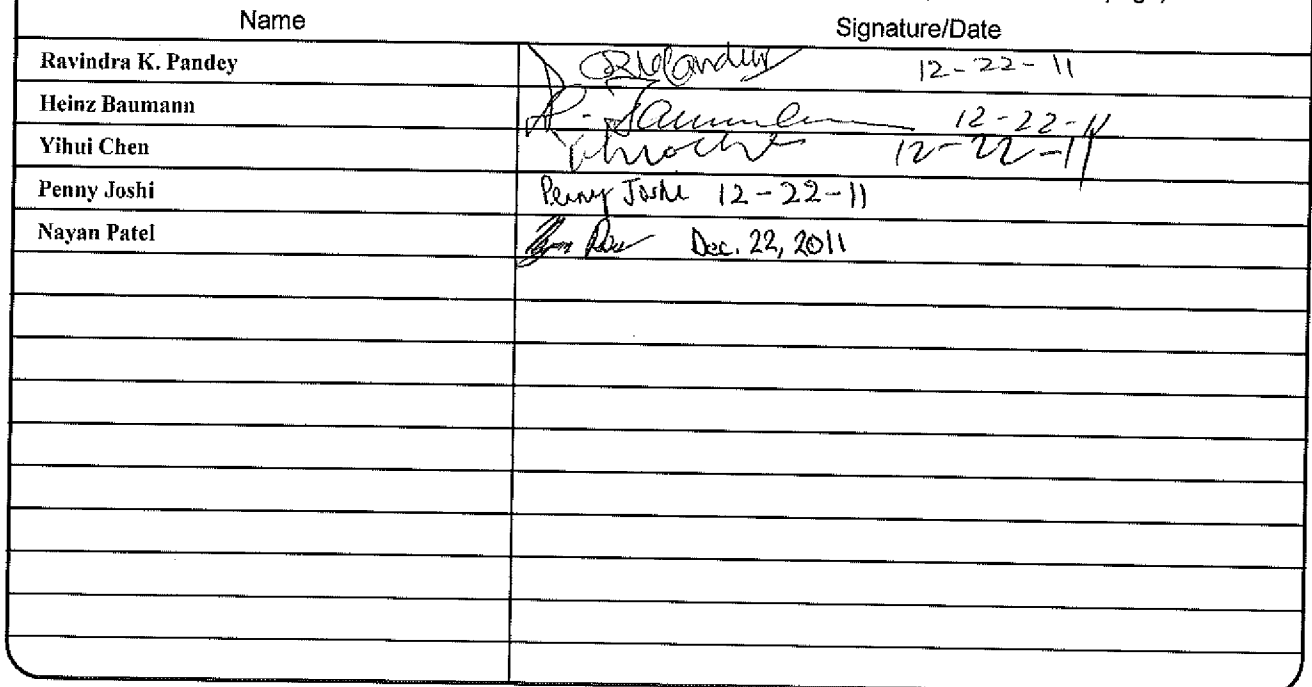 Name Signature/Date
Ravindra K. Pandey RKPandey 12-22-11
Heinz Baumann H. Baumann 12-22-11
Yihui Chen 12-22-11
Penny Joshi Penny Joshi 12-22-11
Nayan Patel Dec. 22, 2011